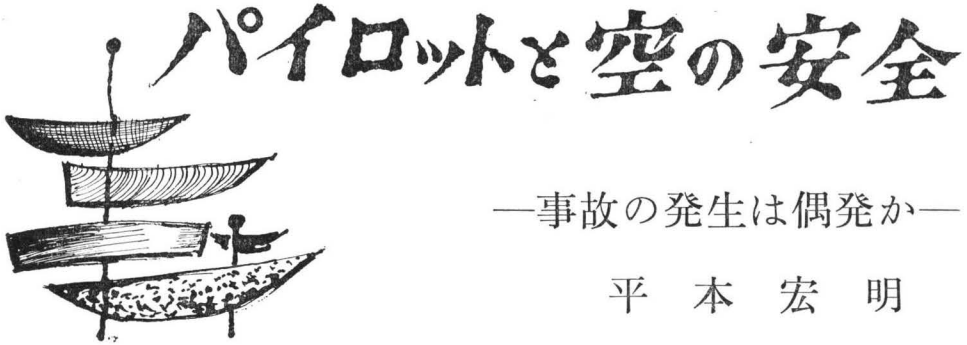 パイロットと空の安全
―事故の発生は偶発か―
平本宏明